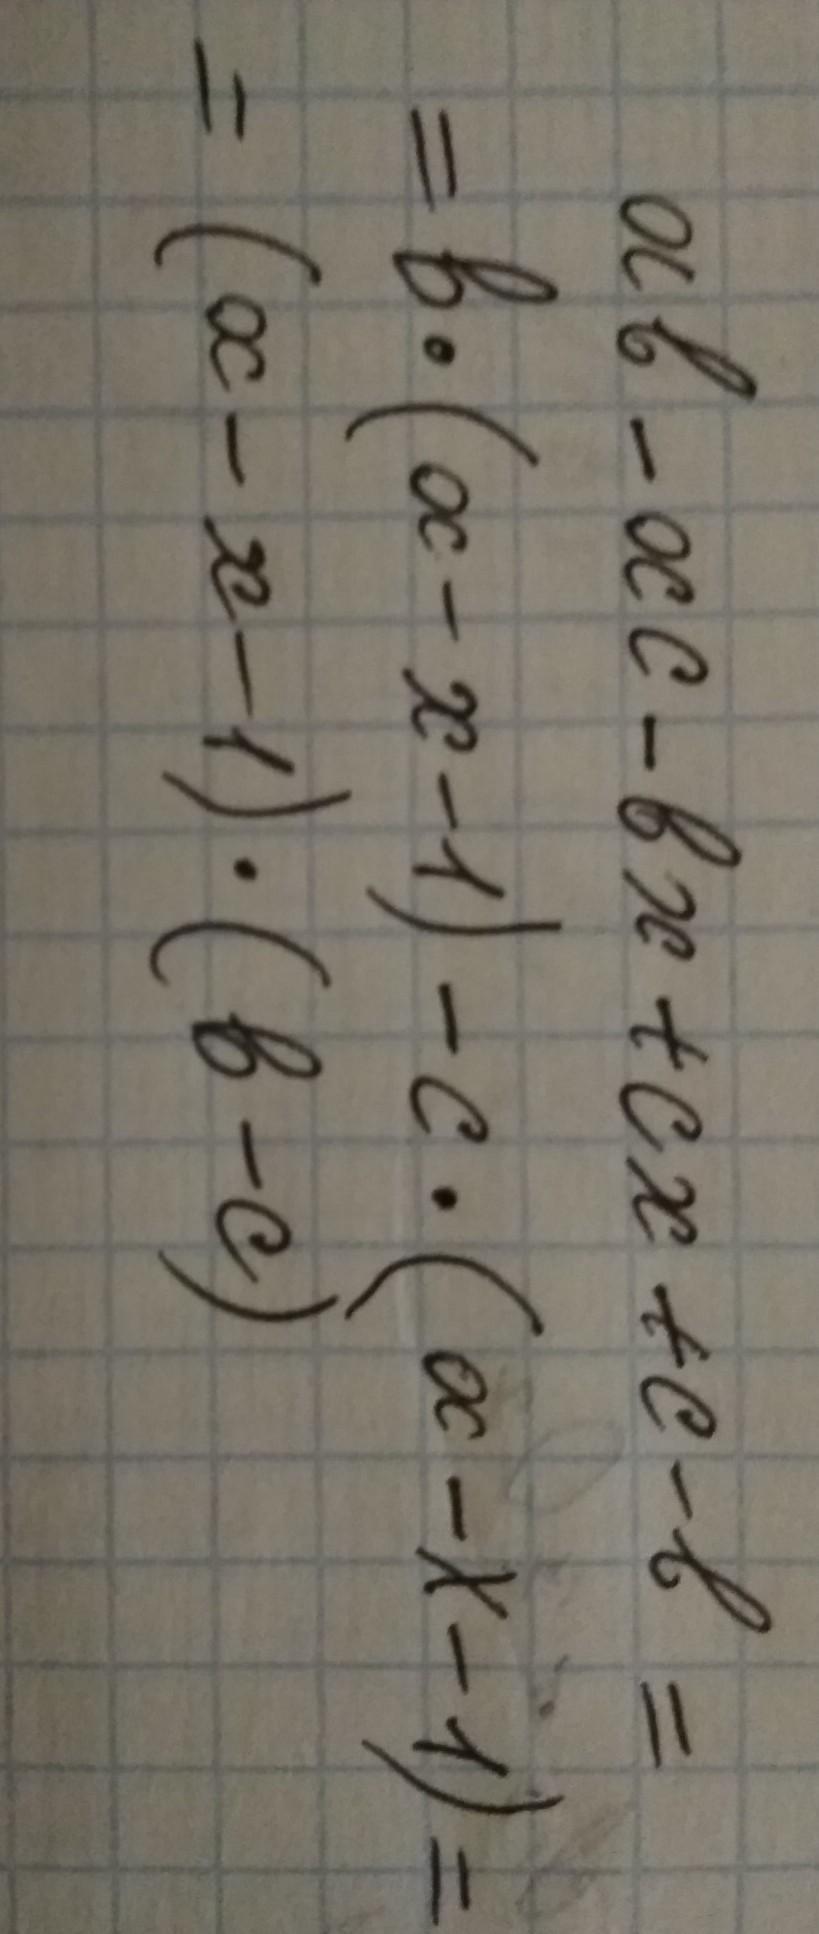 ab - ac - bx + cx + c - b =
= b · (a - x - 1) - c · (a - x - 1) =
= (a - x - 1) · (b - c)